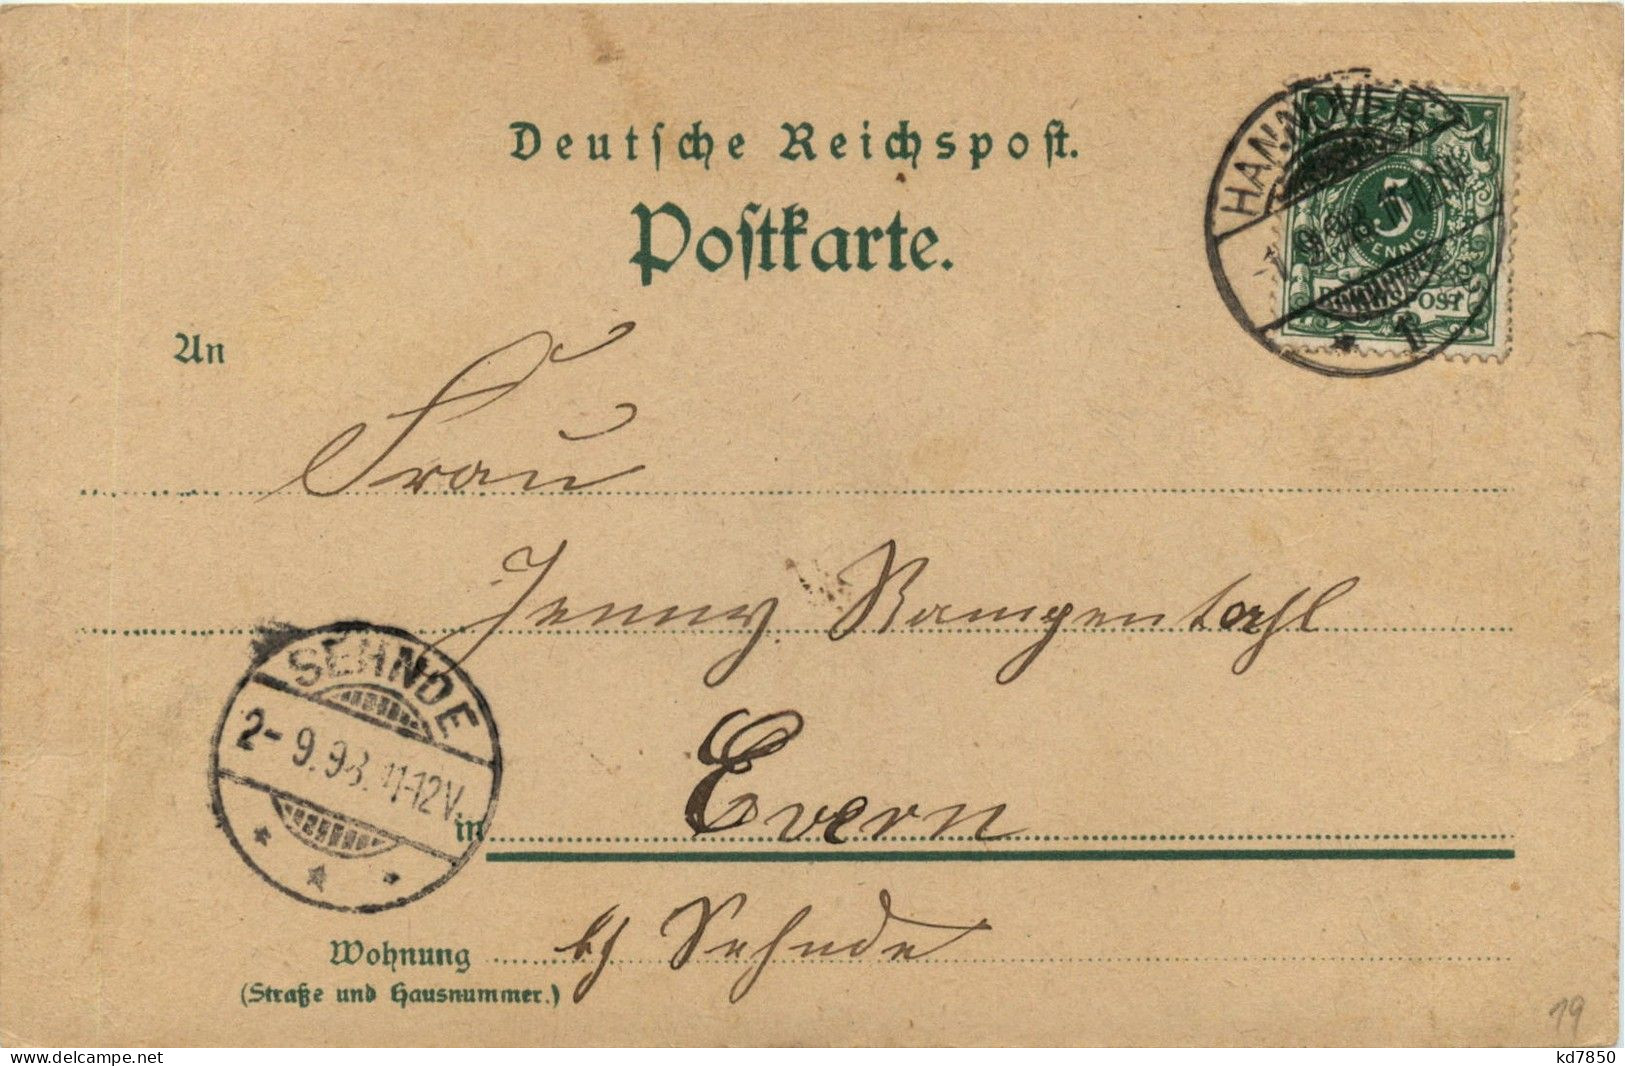 Deutsche Reichspost.
Postkarte.
HANNOVER 1
9.98. 11-12N
5
PFENNIG
REICHSPOST
1
An
Frau
Jenny Rangentahl
SEHNDE
2-9.98. 11-12V.
in Evern
Wohnung b/ Sehnde
(Straße und Hausnummer.)
19
delcampe.net
kd7850